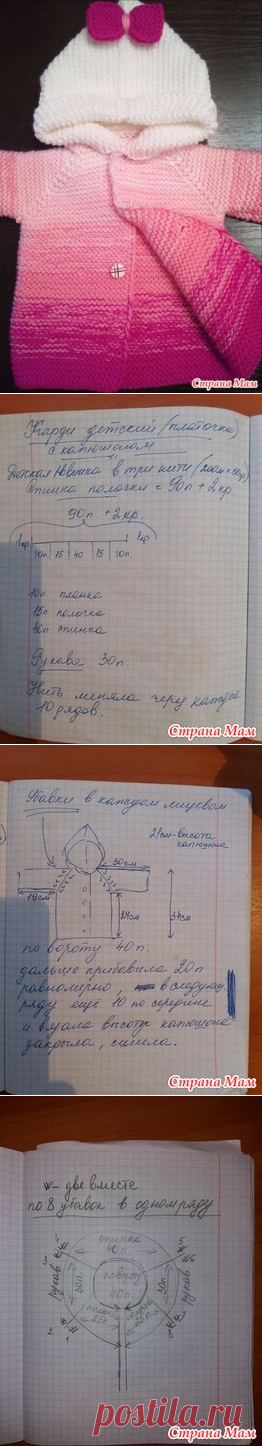 Страна Мам
Карди детский (платочка)
с капюшоном
Детская Новинка в три нити
Спинка полочки = 90п + 2 кр.
90п. + 2 кр.
1кр 1кр
10п 15 40 15 10п.
10п. планка
15п полочка
40п спинка
Рукава 30п.
Нить меняла через каждые
10 рядов.
Страна Мам
Убавки в каждом лицевом
21см - высота
капюшона
30см
19см
24см
34см
по вороту 40п.
дальше прибавила 20п
равномерно, в следующ.
ряду ещё 10 по середине
и вязала высоту капюшона
закрыла, сшила.
Страна Мам
- две вместе
по 8 убавок в одном ряду
спинка
40п.
по вороту
40п.
Рукав
30п.
30п.
Рукав
полочка
25п.
полочка
25п.
Страна Мам
postila.ru